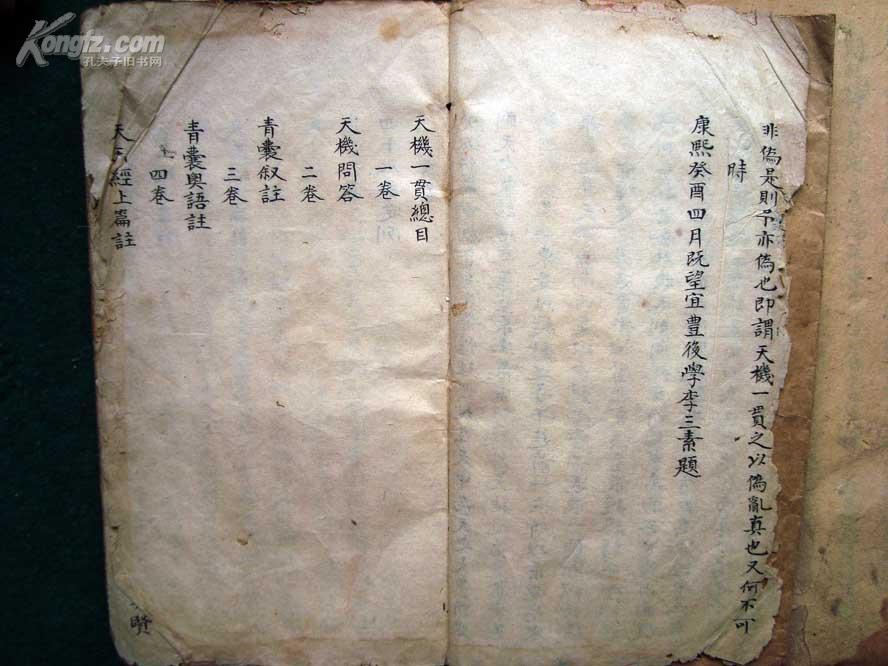 非偽是則予亦偽也即謂天機一貫之以偽亂真也又何不可
時
康熙癸酉四月既望宜豊後學李三素題
天機一貫總目
一卷
天機問答
二卷
青囊叙註
三卷
青囊奧語註
四卷
天玉經上篇註
賢
Kongfz.com
孔夫子旧书网